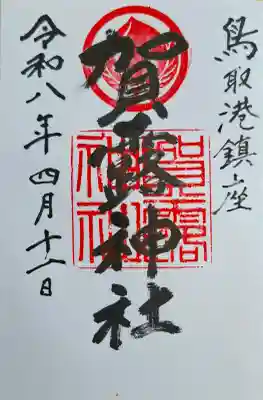 鳥取港鎮座
賀露神社
賀露神社
令和八年四月十二日